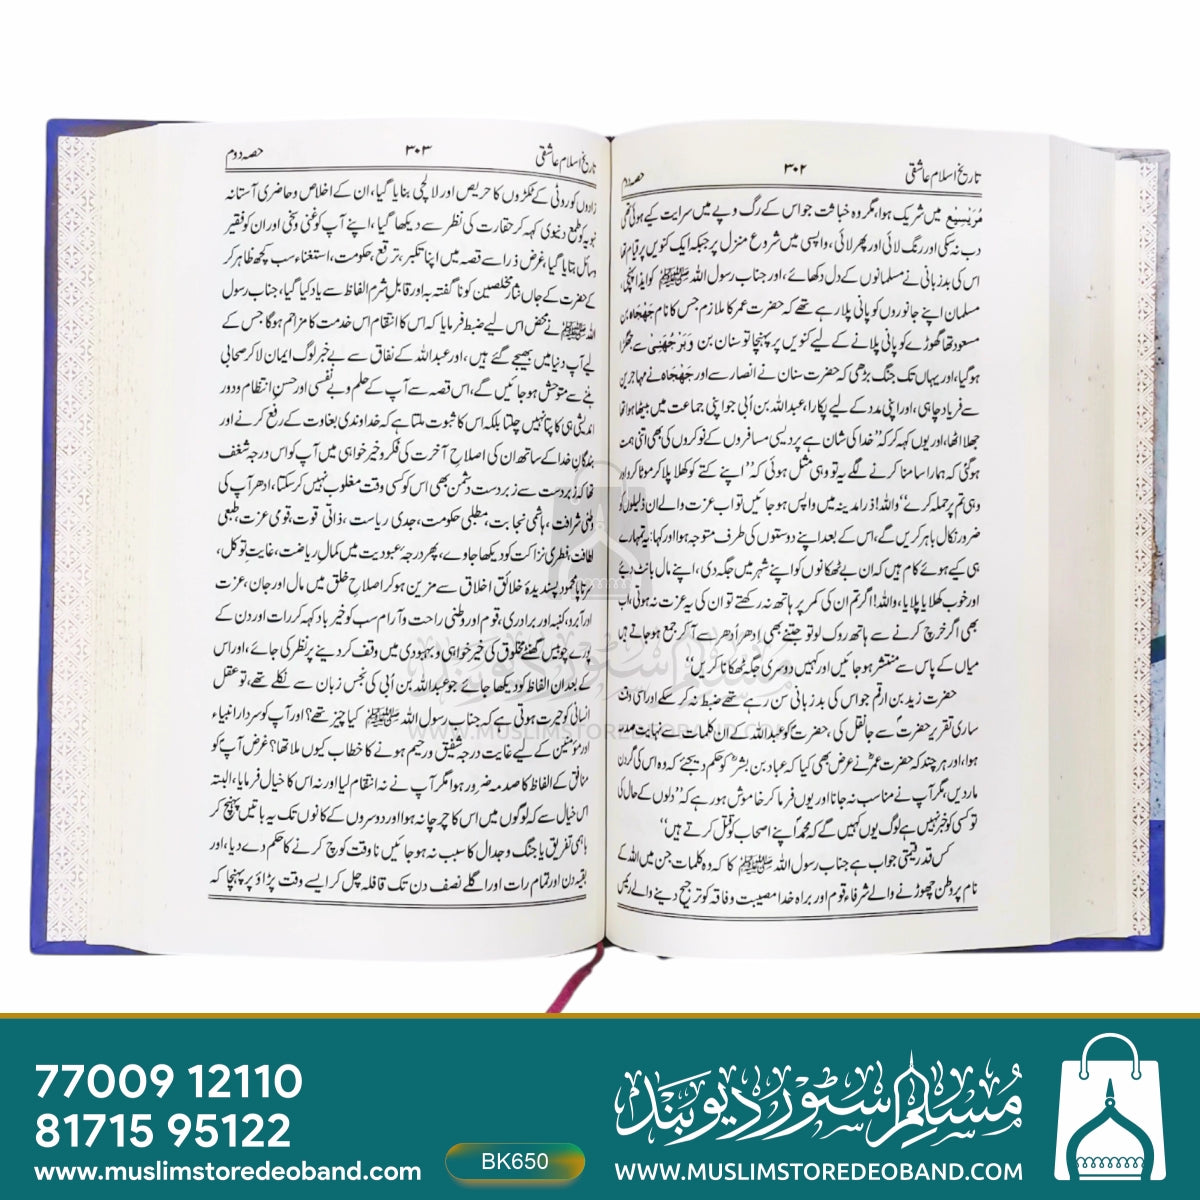 تاریخ اسلام عاشقی ۳۰۲ حصہ دوم
مُرَیْسِیْع میں شریک ہوا، مگر وہ خباثت جو اس کے رگ وپے میں سرایت کیے ہوئی تھی
دب نہ سکی اور رنگ لائی اور پھر لائی، واپسی میں شروع منزل پر جبکہ ایک کنویں پر قیام تھا
اس کی بدزبانی نے مسلمانوں کے دل دکھائے، اور جناب رسول اللہ ﷺ کو ایذا پہنچی،
مسلمان اپنے جانوروں کو پانی پلا رہے تھے کہ حضرت عمر کا ملازم جس کا نام جَهْجَاه بن
مسعود تھا گھوڑے کو پانی پلانے کے لیے کنویں پر پہنچا تو سنان بن وَبَر جُهَنِی سے جھگڑا
ہوگیا، اور یہاں تک جنگ بڑھی کہ حضرت سنان نے انصار سے اور جَهْجَاه نے مہاجرین
سے فریاد چاہی، اور اپنی مدد کے لیے پکارا، عبداللہ بن اُبی جو اپنی جماعت میں بیٹھا ہوا تھا
جھلا اٹھا، اور یوں کہہ کر کہ ”خدا کی شان ہے پردیسی مسافروں کے نوکروں کی بھی اتنی ہمت
ہوگئی کہ ہمارا سامنا کرنے لگے یہ تو وہی مثل ہوئی کہ ”اپنے کتے کو کھلا پلا کر موٹا کرو اور
وہی تم پر حملہ کرے“ واللہ! ذرا مدینہ میں واپس ہو جائیں تو اب عزت والے ان ذلیلوں کو
ضرور نکال باہر کریں گے، اس کے بعد اپنے دوستوں کی طرف متوجہ ہوا اور کہا: یہ تمہارے
ہی کیے ہوئے کام ہیں کہ ان بے ٹھکانوں کو اپنے شہر میں جگہ دی، اپنے مال بانٹ دیے
اور خوب کھلایا پلایا، واللہ! اگر تم ان کی کمر پر ہاتھ نہ رکھتے تو ان کی یہ عزت نہ ہوتی، اب
بھی اگر خرچ کرنے سے ہاتھ روک لو تو جتنے بھی اِدھر اُدھر سے آ کر جمع ہو جاتے ہیں
میاں کے پاس سے منتشر ہو جائیں اور کہیں دوسری جگہ ٹھکانا کریں“
حضرت زید بن ارقم جو اس کی بدزبانی سن رہے تھے ضبط نہ کر سکے اور اسی وقت
ساری تقریر حضرت سے جا نقل کی، حضرت کو عبداللہ کے ان کلمات سے نہایت صدمہ
ہوا، اور ہر چند کہ حضرت عمرؓ نے عرض بھی کیا کہ عباد بن بشرؓ کو حکم دیجئے کہ وہ اس کی گردن
ماردیں، مگر آپ نے مناسب نہ جانا اور یوں فرما کر خاموش ہو رہے کہ ”دلوں کے حال کی
تو کسی کو خبر نہیں ہے لوگ یوں کہیں گے کہ محمدؐ اپنے اصحاب کو قتل کرتے ہیں“
کس قدر قیمتی جواب ہے جناب رسول اللہ ﷺ کا کہ وہ کلمات جن میں اللہ کے
نام پر وطن چھوڑنے والے شرفاء قوم اور براہ خدا مصیبت وفاقہ کو ترجیح دینے والے رئیس
تاریخ اسلام عاشقی ۳۰۳ حصہ دوم
زادوں کو روٹی کے ٹکڑوں کا حریص اور لالچی بنایا گیا، ان کے اخلاص وحاضری آستانہ
نبویہ کو طمع دنیوی کہہ کر حقارت کی نظر سے دیکھا گیا، اپنے آپ کو غنی وسخی اور ان کو فقیر
وسائل بتایا گیا، غرض ذرا سے قصہ میں اپنا تکبر، ترفع، حکومت، استغناء سب کچھ ظاہر کر
کے حضرت کے جاں نثار مخلصین کو ناگفتہ بہ اور قابل شرم الفاظ سے یاد کیا گیا، جناب رسول
اللہ ﷺ نے محض اس لیے ضبط فرمایا کہ اس کا انتقام اس خدمت کا مزاحم ہوگا جس کے
لیے آپ دنیا میں بھیجے گئے ہیں، اور عبداللہ کے نفاق سے بے خبر لوگ ایمان لا کر صحابی
بننے سے متوحش ہو جائیں گے، اس قصہ سے آپ کے حلم وبے نفسی اور حسنِ انتظام ودور
اندیشی ہی کا پتا نہیں چلتا بلکہ اس کا ثبوت ملتا ہے کہ خداوندی بغاوت کے رفع کرنے اور
بندگان خدا کے ساتھ ان کی اصلاح آخرت کی فکر وخیر خواہی میں آپ کو اس درجہ شغف
تھا کہ زبردست سے زبردست دشمن بھی اس کو کسی وقت مغلوب نہیں کر سکتا، ادھر آپ کی
وطنی شرافت، ہاشمی نجابت، مطلبی حکومت، جدی ریاست، ذاتی قوت، قومی عزت، طبعی
لطافت، فطری نزاکت کو دیکھا جاوے، پھر درجۂ عبودیت میں کمالِ ریاضت، غایتِ توکل،
سرتاپا محمود پسندیدۂ خلائق اخلاق سے مزین ہوکر اصلاحِ خلق میں مال اور جان، عزت
اور آبرو، کنبہ اور برادری، قوم اور وطنی راحت وآرام سب کو خیر باد کہہ کر رات اور دن کے
پورے چوبیس گھنٹے مخلوق کی خیر خواہی وبہبودی میں وقف کر دینے پر نظر کی جائے، اور اس
کے بعد ان الفاظ کو دیکھا جائے جو عبداللہ بن اُبی کی نجس زبان سے نکلے تھے، تو عقل
انسانی کو حیرت ہوتی ہے کہ جناب رسول اللہ ﷺ کیا چیز تھے؟ اور آپ کو سردار انبیاء
اور مؤمنین کے لیے غایت درجہ شفیق ورحیم ہونے کا خطاب کیوں ملا تھا؟ غرض آپ کو
منافق کے الفاظ کا صدمہ ضرور ہوا مگر آپ نے نہ انتقام لیا اور نہ اس کا خیال فرمایا، البتہ
اس خیال سے کہ لوگوں میں اس کا چرچا نہ ہو اور دوسروں کے کانوں تک یہ باتیں پہنچ کر
باہمی تفریق یا جنگ وجدال کا سبب نہ ہو جائیں نا وقت کوچ کرنے کا حکم دے دیا، اور
بقیہ دن اور تمام رات اور اگلے نصف دن تک قافلہ چل کر ایسے وقت پڑاؤ پر پہنچا کہ
مسلم سٹور دیوبند
WWW.MUSLIMSTOREDEOBAND.COM
77009 12110
81715 95122
www.muslimstoredeoband.com
BK650
مسلم سٹور دیوبند
WWW.MUSLIMSTOREDEOBAND.COM